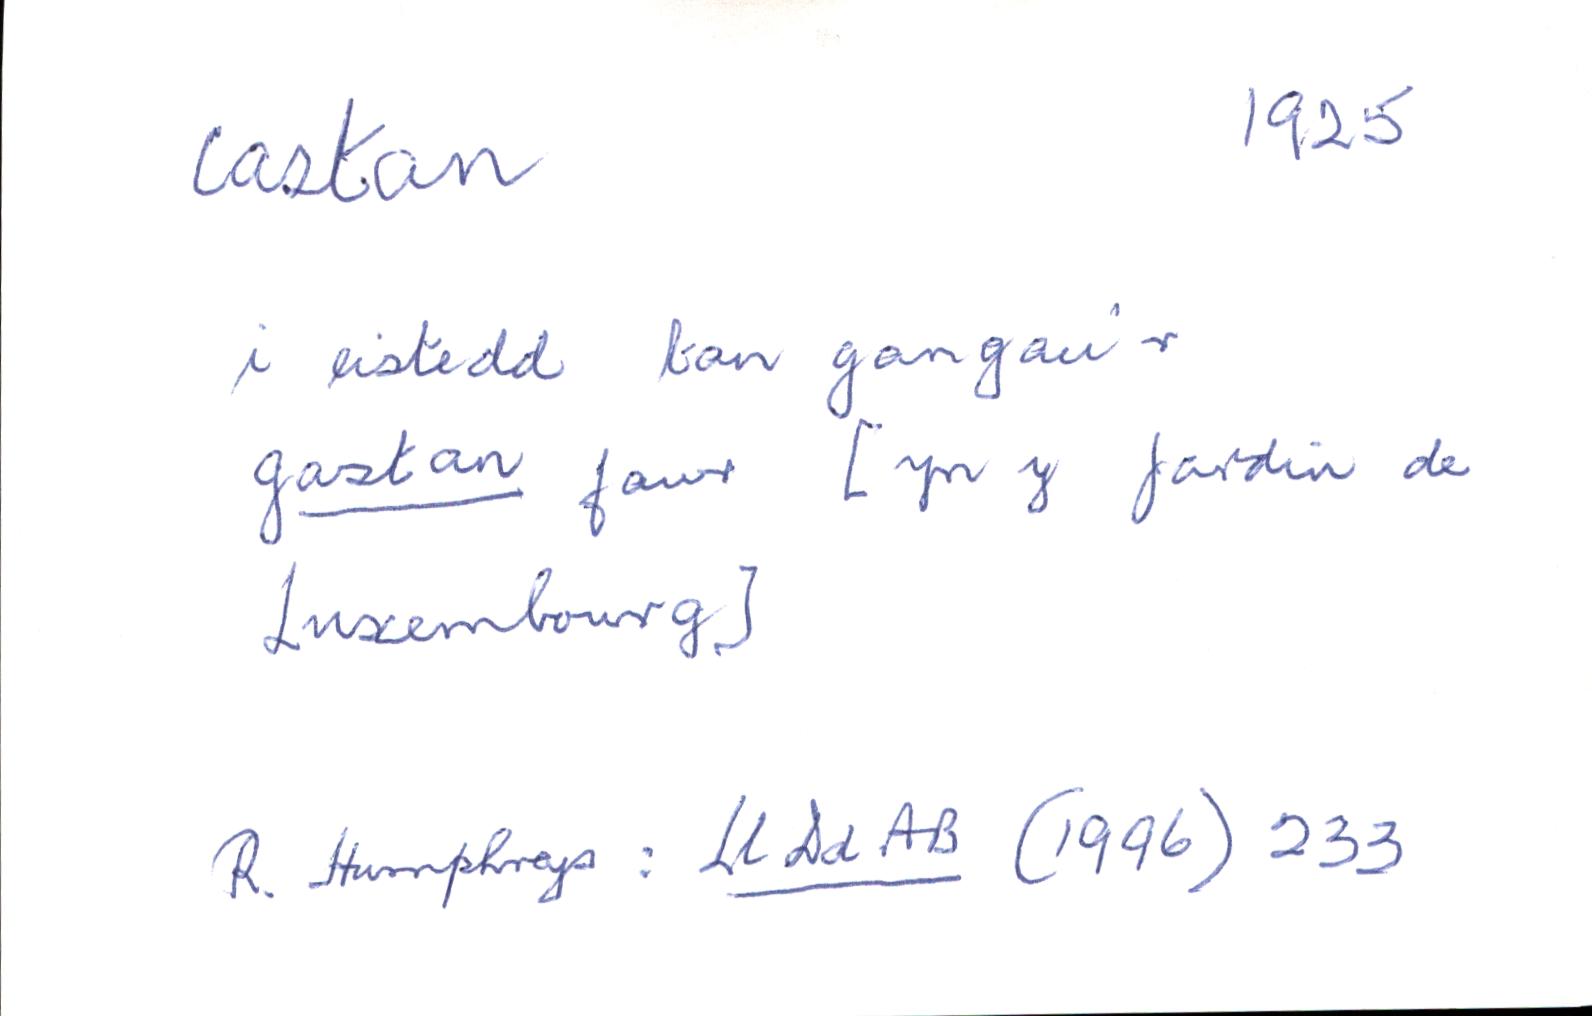 castan 1925
i eistedd tan gangau'r
gastan fawr [yn y Jardin de
Luxembourg]
R. Humphreys: Ll Dd AB (1996) 233